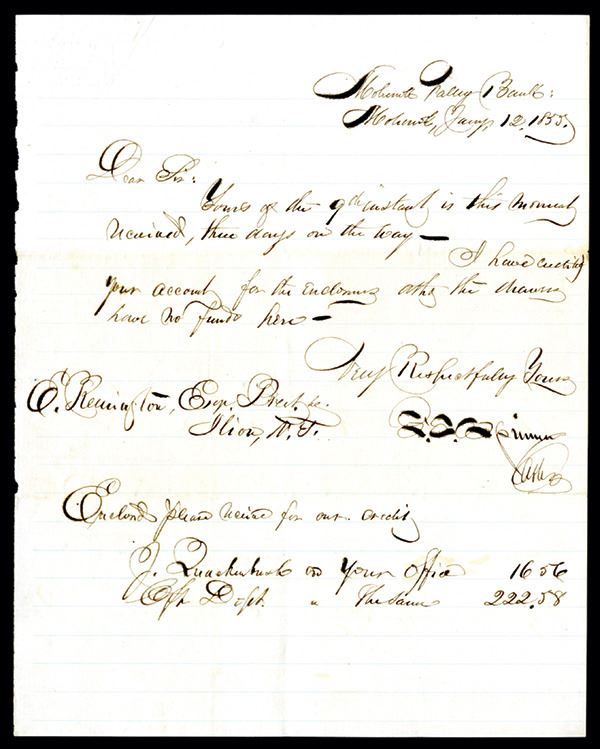 Mohawk Valley Bank:
Mohawk, Jany. 12, 1855.
Dear Sir:
Yours of the 9th instant is this moment
received, three days on the way —
I have credited
your account for the enclosures altho the drawers
have no funds here —
Very Respectfully Yours
E. Remington, Esqr. Prest. &c.
Ilion, N.Y.
F. E. Spinner
Cash
Enclosed please receive for our credit
J. Quackenbush on Your Office 16 56
Dept. " The Same 222.58